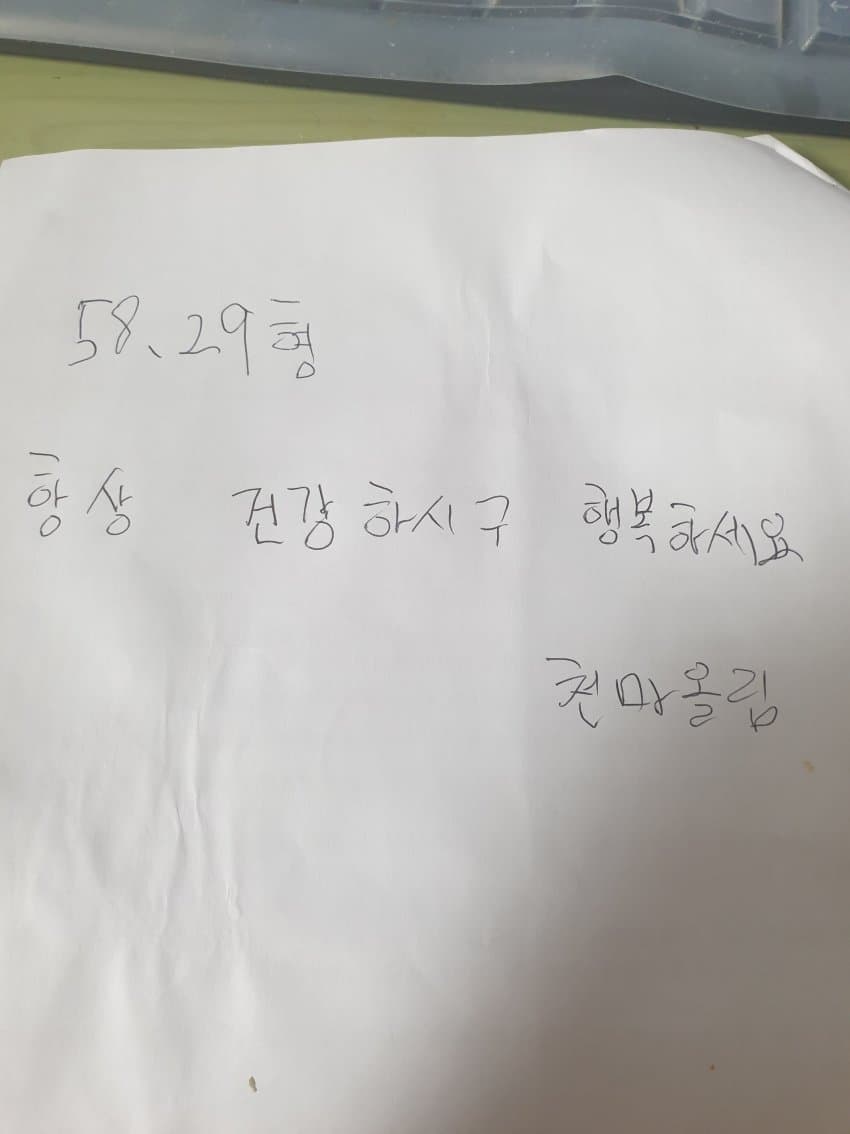 58、29형
항상 건강하시구 행복하세요
천마올림